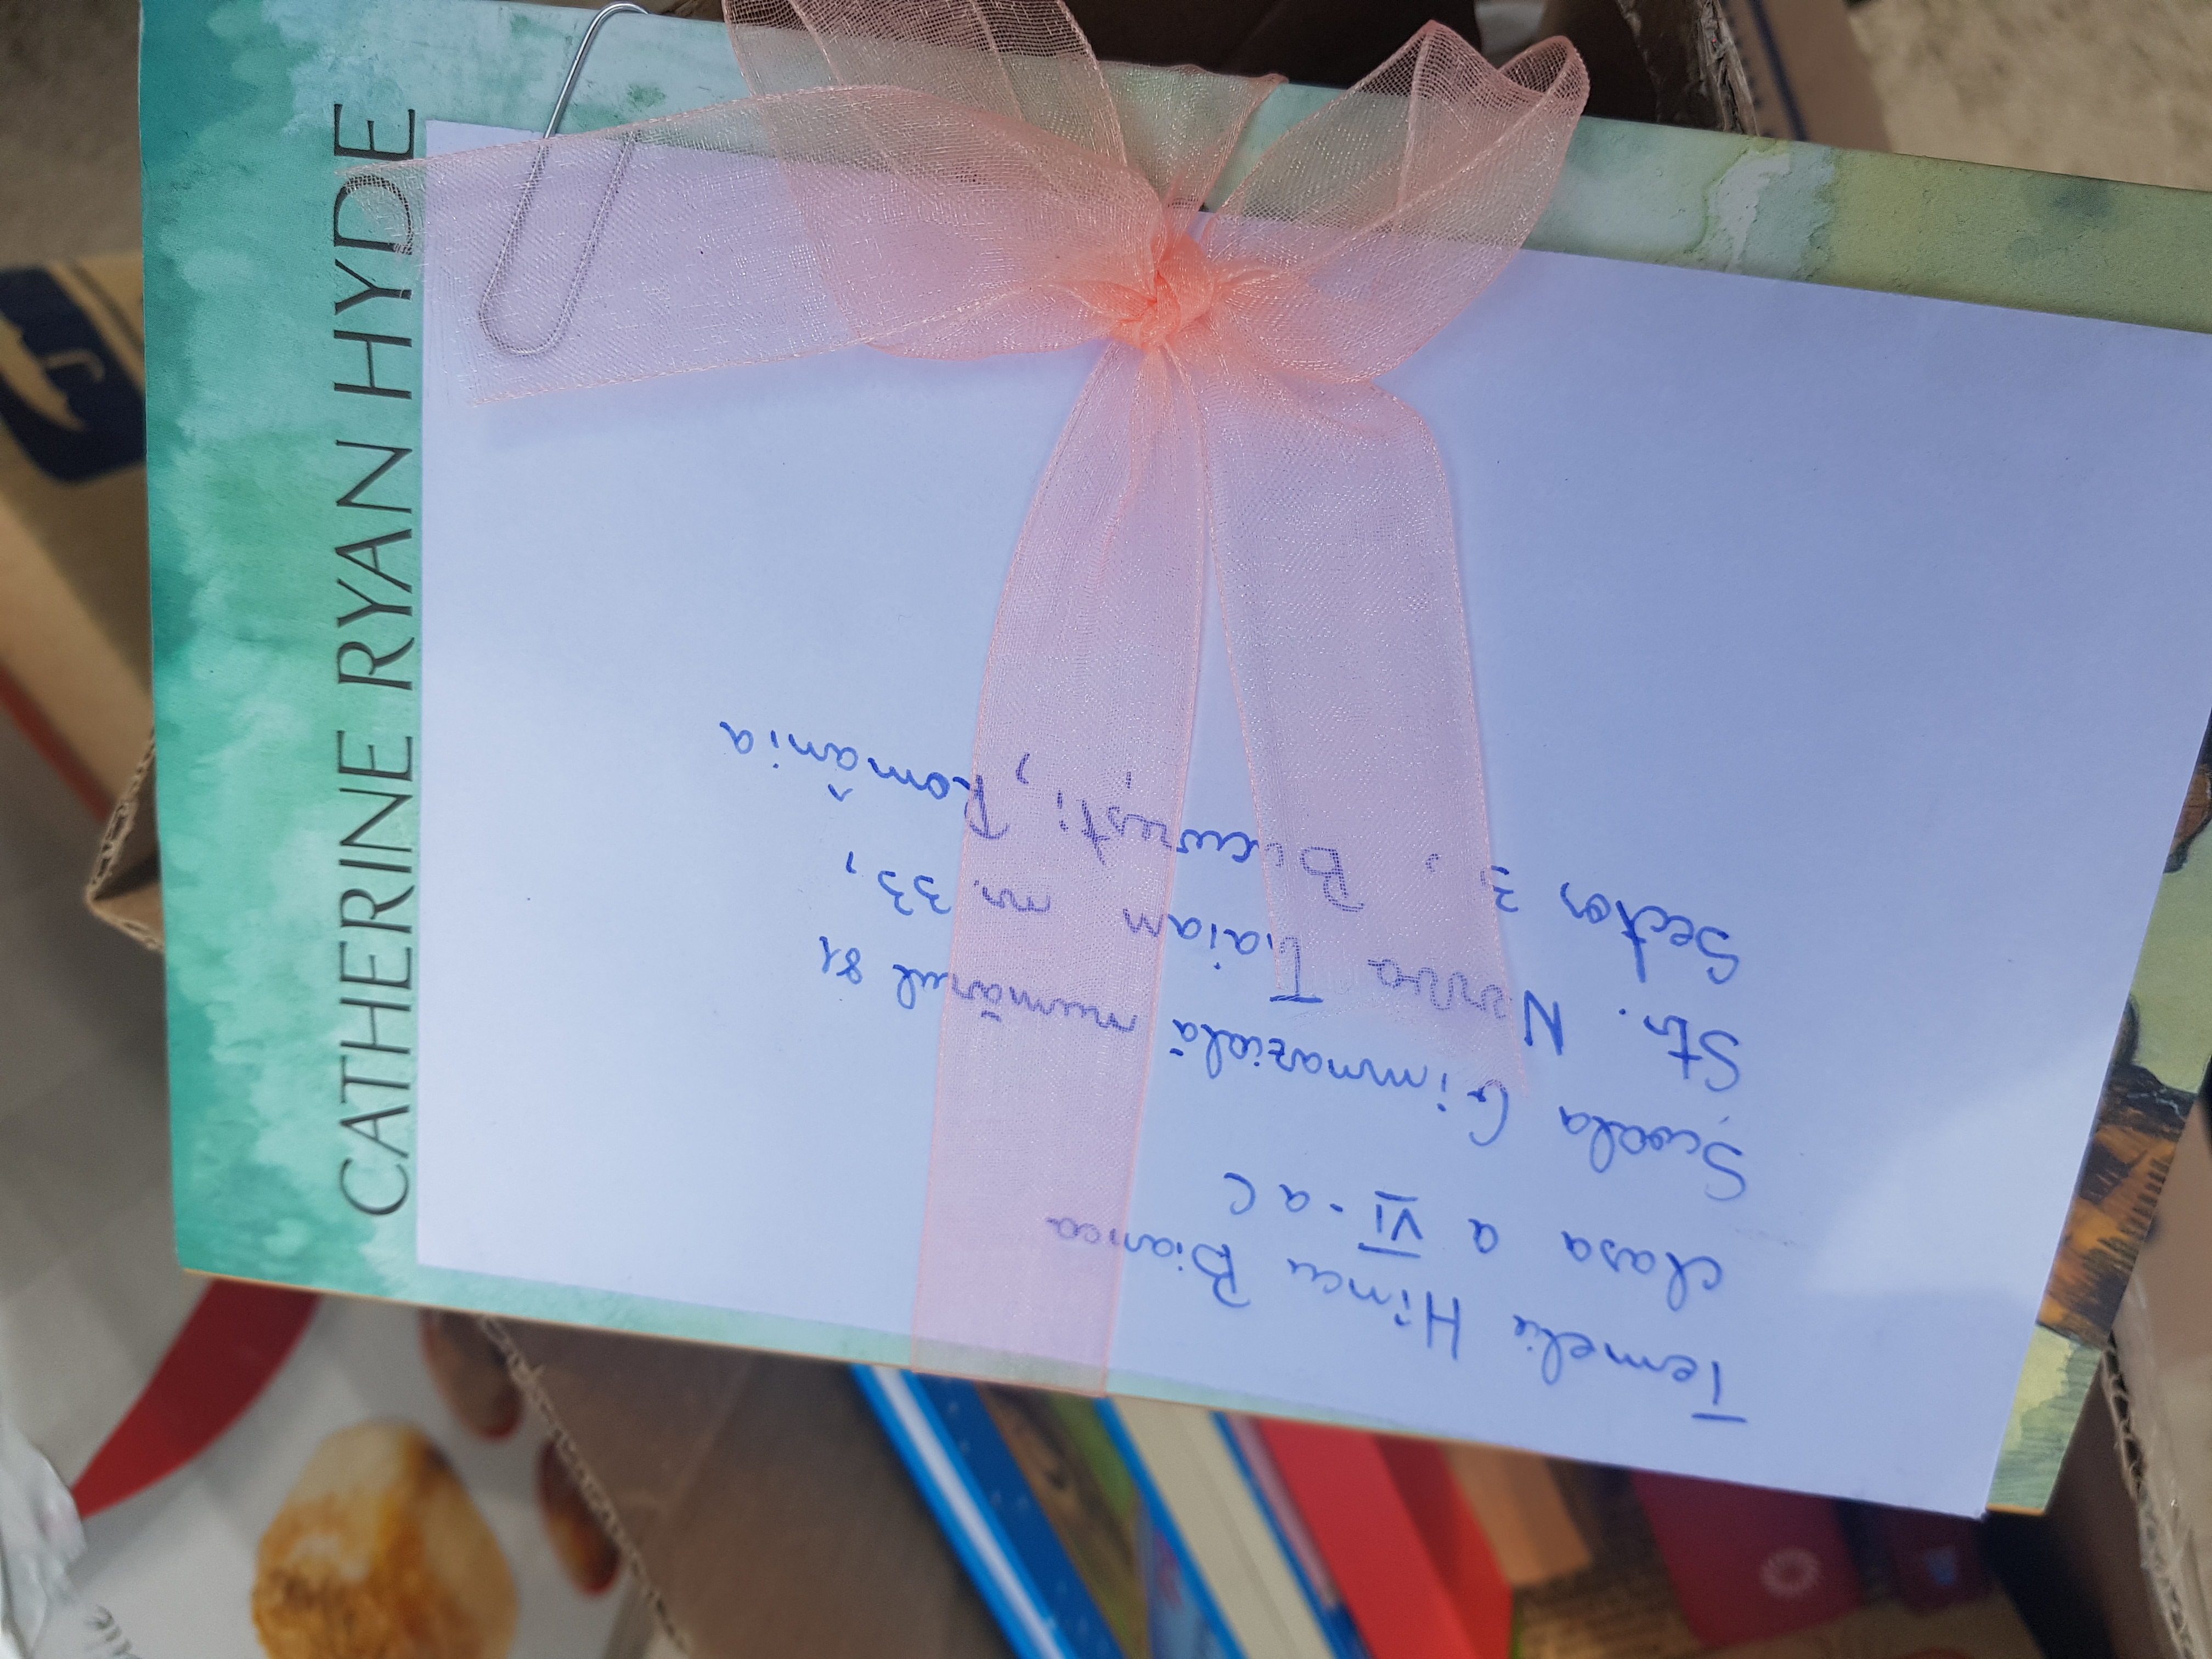 CATHERINE RYAN HYDE
Temelie Hîncu Bianca
clasa a VI-a C
Școala Gimnazială numărul 81
Str. Nerva Traian nr. 33,
Sector 3, București, România